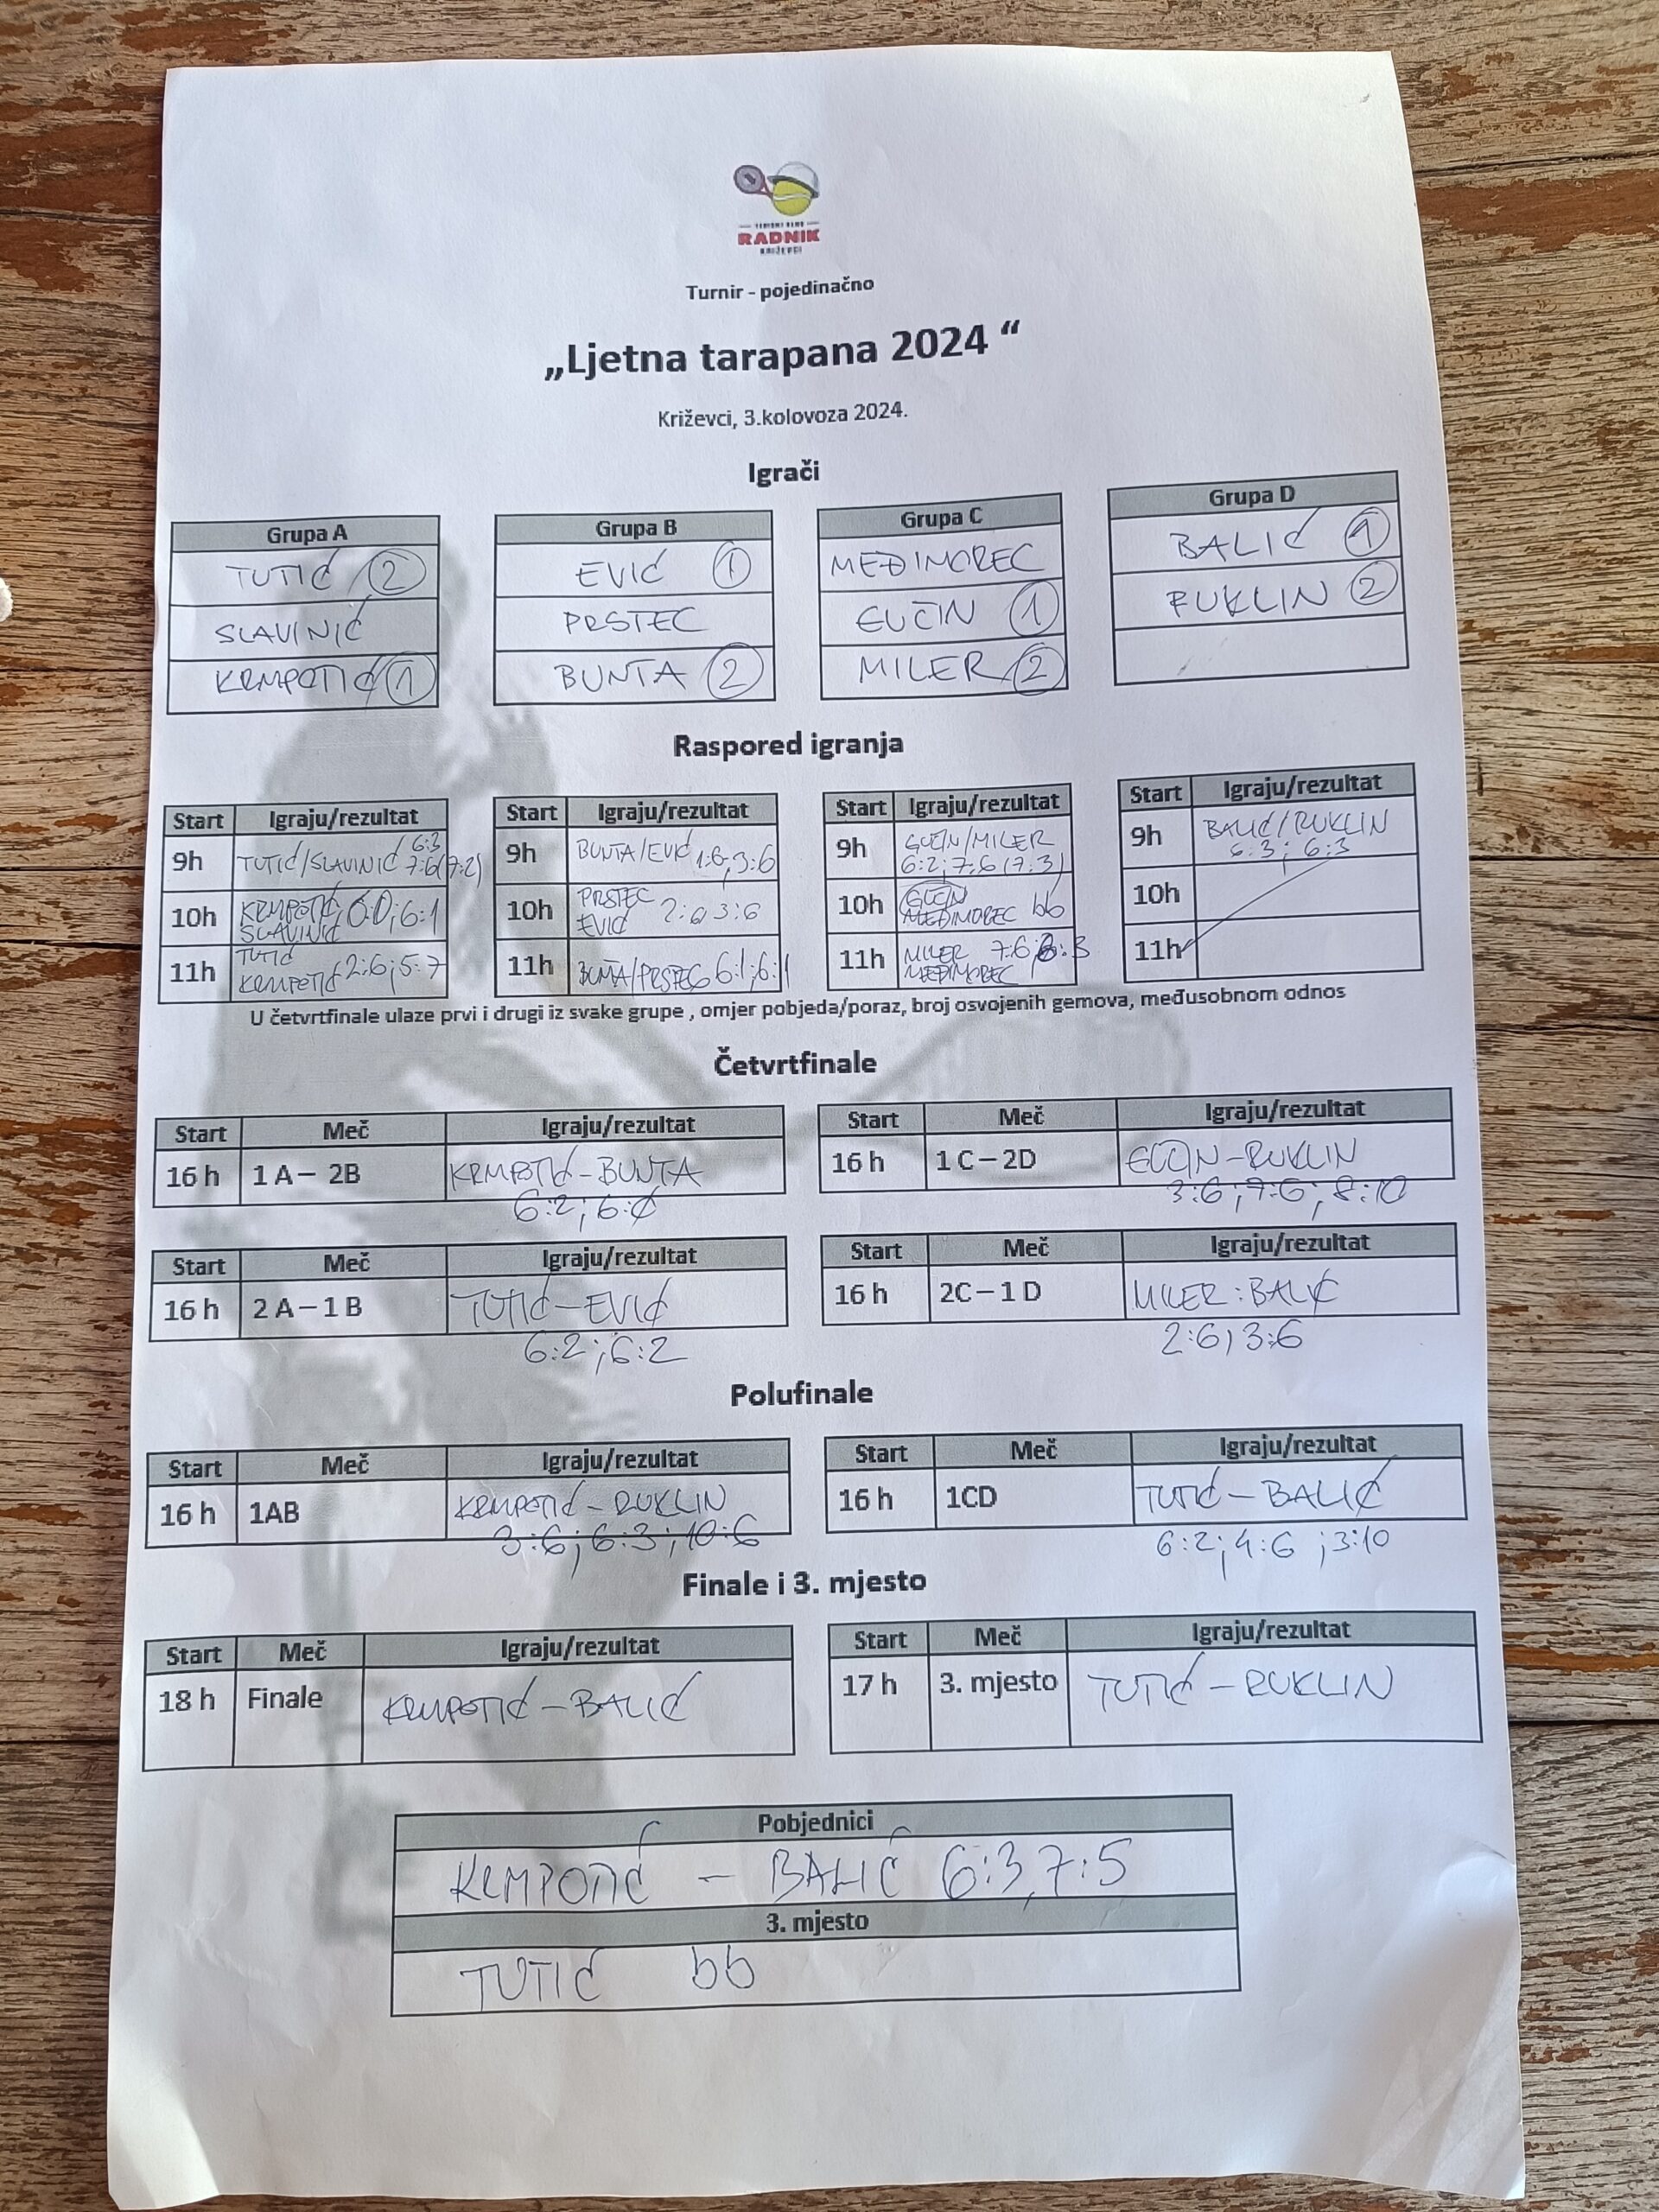 TENISKI KLUB
RADNIK
KRIŽEVCI
Turnir - pojedinačno
„Ljetna tarapana 2024 “
Križevci, 3.kolovoza 2024.
Igrači
Grupa A
TUTIĆ 2
SLAVINIĆ
KRMPOTIĆ 1
Grupa B
EVIĆ 1
PRSTEC
BUNTA 2
Grupa C
MEĐIMOREC
1
MILER 2
Grupa D
BALIĆ 1
RUKLIN 2
Raspored igranja
Start Igraju/rezultat
9h TUTIĆ/SLAVINIĆ 6:3 7:6(7:2)
10h KRMPOTIĆ SLAVINIĆ 6:0;6:1
11h TUTIĆ KRMPOTIĆ 2:6;5:7
Start Igraju/rezultat
9h BUNTA/EVIĆ 1:6,3:6
10h PRSTEC EVIĆ 2:6,3:6
11h BUNTA/PRSTEC 6:1;6:1
Start Igraju/rezultat
9h /MILER
6:2;7:6(7:3)
10h MEĐIMOREC bb
11h MILER MEĐIMOREC 7:6
Start Igraju/rezultat
9h BALIĆ/RUKLIN
6:3; 6:3
10h
11h
U četvrtfinale ulaze prvi i drugi iz svake grupe , omjer pobjeda/poraz, broj osvojenih gemova, međusobnom odnos
Četvrtfinale
Start Meč Igraju/rezultat
16 h 1 A – 2B KRMPOTIĆ-BUNTA
6:2;6:0
Start Meč Igraju/rezultat
16 h 1 C – 2D -RUKLIN
3:6;7:6;8:10
Start Meč Igraju/rezultat
16 h 2 A – 1 B TUTIĆ-EVIĆ
6:2;6:2
Start Meč Igraju/rezultat
16 h 2C – 1 D MILER:BALIĆ
2:6,3:6
Polufinale
Start Meč Igraju/rezultat
16 h 1AB KRMPOTIĆ-RUKLIN
3:6;6:3;10:6
Start Meč Igraju/rezultat
16 h 1CD TUTIĆ-BALIĆ
6:2;4:6;3:10
Finale i 3. mjesto
Start Meč Igraju/rezultat
18 h Finale KRMPOTIĆ-BALIĆ
Start Meč Igraju/rezultat
17 h 3. mjesto TUTIĆ-RUKLIN
Pobjednici
KRMPOTIĆ - BALIĆ 6:3,7:5
3. mjesto
TUTIĆ bb